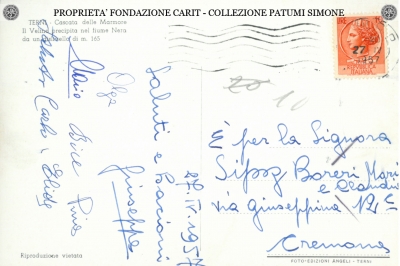 PROPRIETA' FONDAZIONE CARIT - COLLEZIONE PATUMI SIMONE
TERNI - Cascata delle Marmore
Il Velino precipita nel fiume Nera
da un dislivello di m. 165
Saluti e bacioni
Giuseppe
Olga
Maria
Pina
27.IV.1957
20
10
È per la Signora
Boreri
e Claudio
via Giuseppina
Cremona
Riproduzione vietata
FOTO-EDIZIONI ANGELI - TERNI